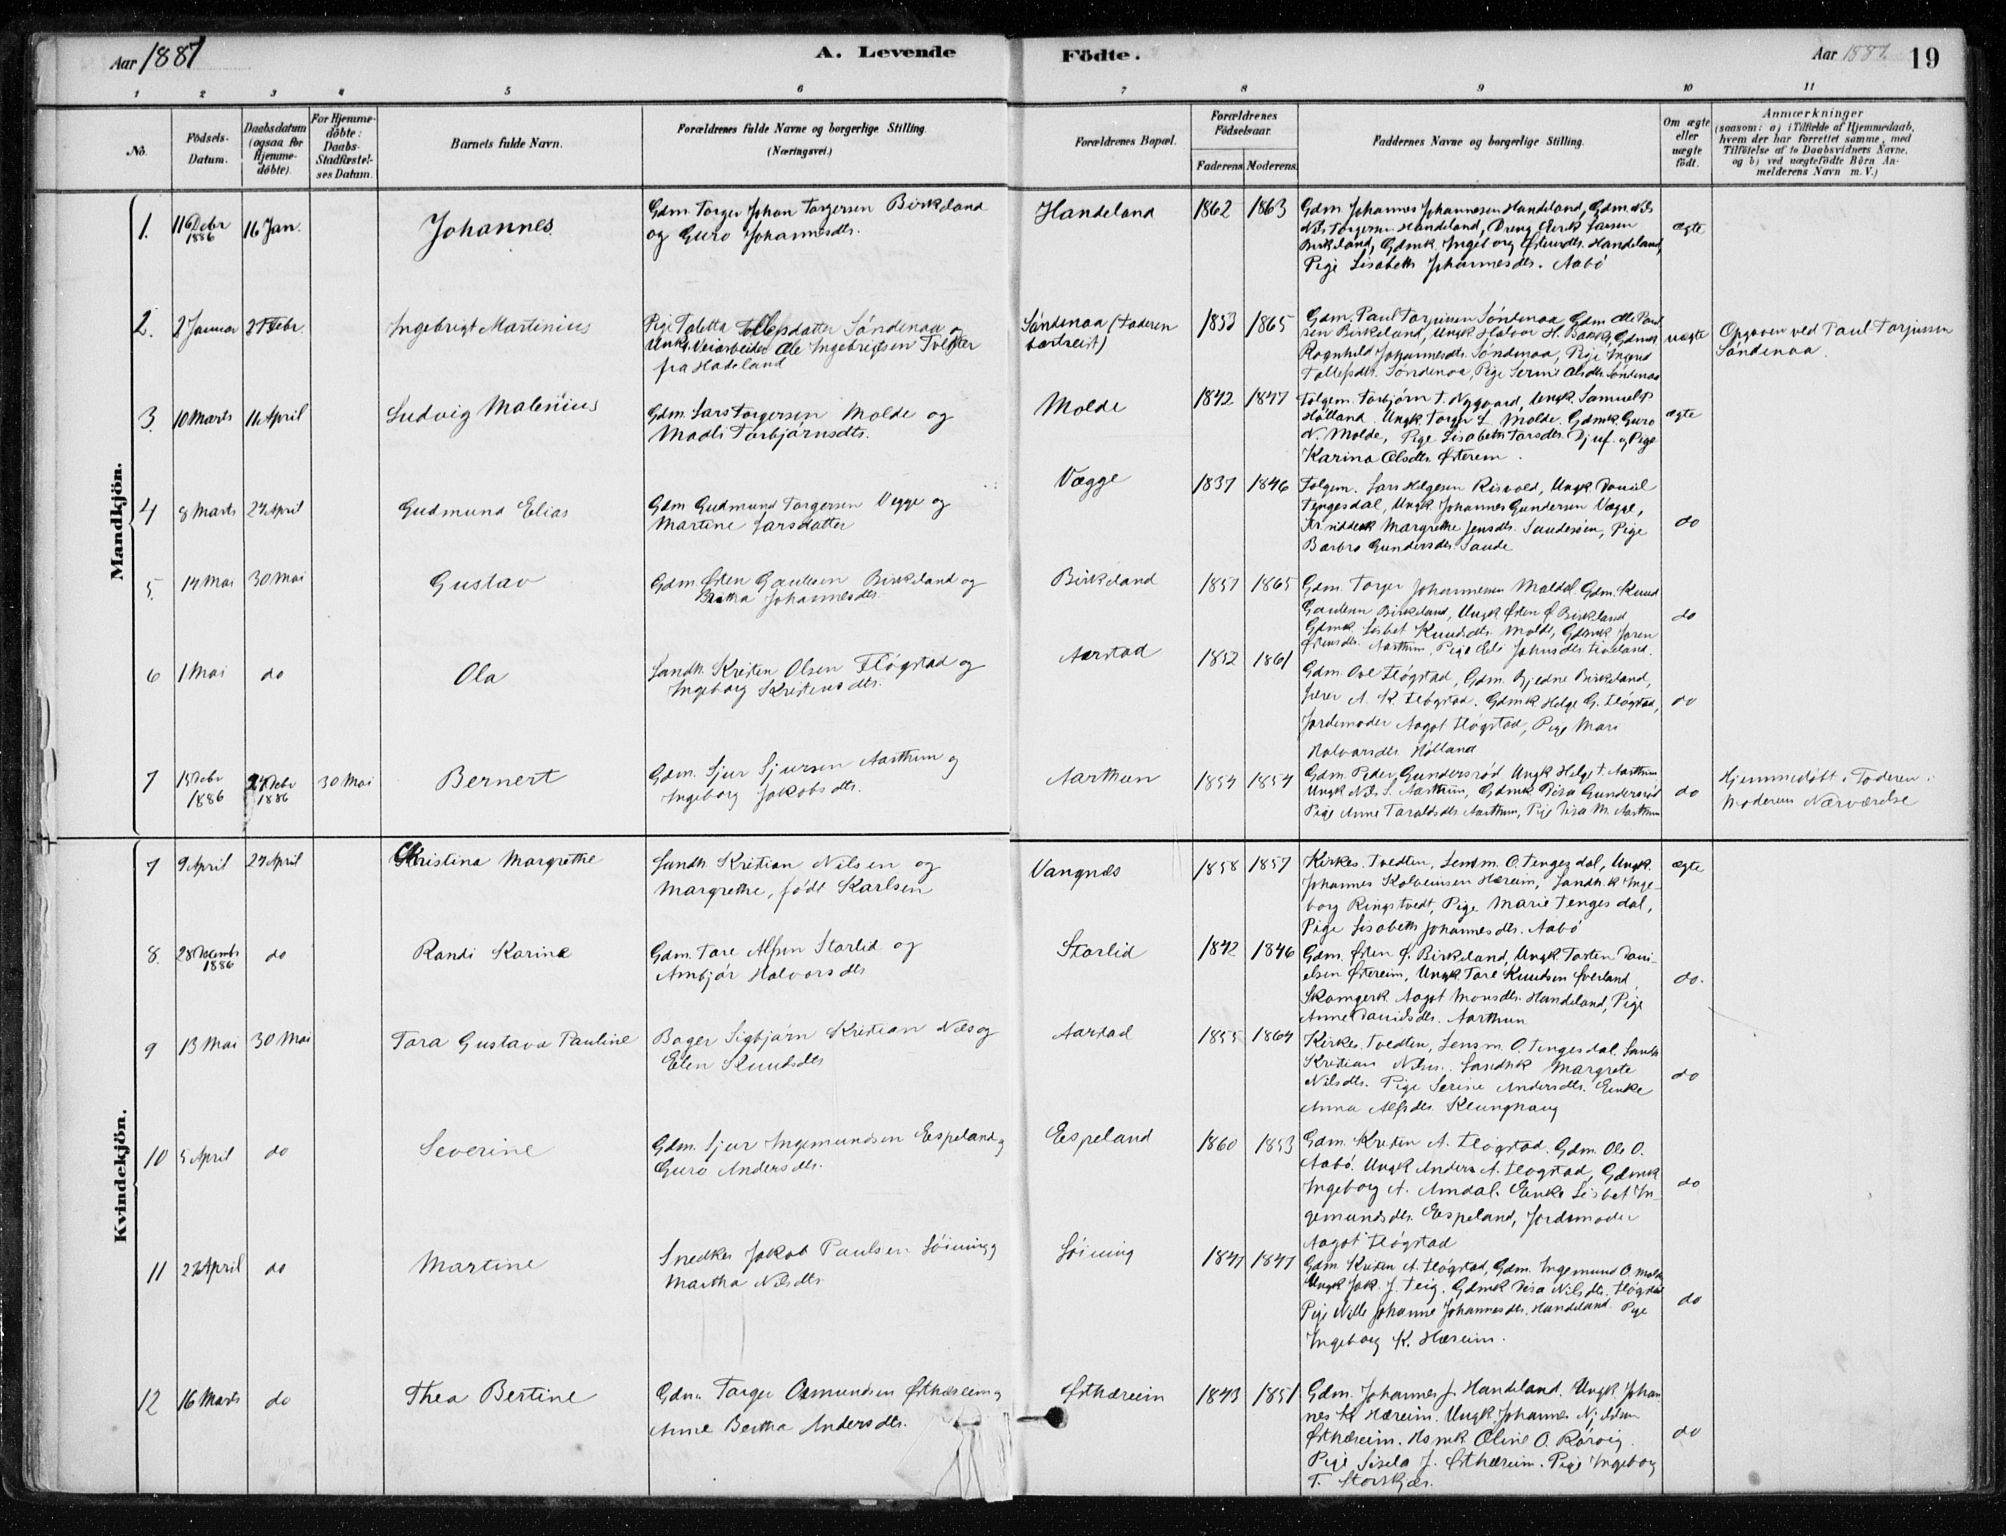 Aar 1887
A. Levende Födte.
Aar 1887. 19
1 2 3 4 5 6 7 8 9 10 11
No.
Födsels-Datum.
Daabsdatum (ogsaa for Hjemmedöbte).
For Hjemmedöbte: Daabs-Stadfæstelses Datum.
Barnets fulde Navn.
Forældrenes fulde Navne og borgerlige Stilling. (Næringsvei.)
Forældrenes Bopæl.
Forældrenes Födselsaar.
Faderens. Moderens.
Faddernes Navne og borgerlige Stilling.
Om ægte eller uægte födt.
Anmærkninger
(saasom: a) i Tilfælde af Hjemmedaab, hvem der har forrettet samme, med Tilföielse af to Daabsvidners Navne, og b) ved uægtefödte Börn Anmelderens Navn m. V.)
Mandkjön.
1. 16 Debr 1886 16 Jan. Johannes
Gdm. Torger Johan Torgersen Birkeland
og Guro Johannesdtr.
Handeland 1862 1863
Gdm. Johannes Johannesen Handeland, Gdm. Nils
Nils Torgersen Handeland, Dreng Lars
Birkeland, Gdmk. Ingeborg Østensdtr. Handeland,
Pige Lisabeth Johannesdtr. Aabö
ægte
2. 2 Januar 27 Febr. Ingebrigt Martinius
Pige Toletta Tollefsdatter Söndenaa og
Unk. Veiarbeider Ole Ingebrigtsen
fra Hadeland
Söndenaa (Faderen
bortreist) 1853 1865
Gdm. Paul Torjusen Söndenaa Gdm. Ole Paul
sen Birkeland, Ungk. Halvor H. Bakke, Gdmk
Ragnhild Johannesdtr. Söndenaa, Pige
Tollefsdtr. Söndenaa, Pige Serine Olsdtr. Söndenaa
uægte
Opgiven ved Paul Torjusen
Söndenaa.
3. 10 Marts 11 April Ludvig Malenius
Gdm. Lars Torgersen Molde og
Madli Torbjörnsdtr.
Molde 1842 1847
Folgem. Torbjörn T. Nygaard, Ungk. Samuel
Hölland, Ungk. Torger L. Molde. Gdmk. Guro
N. Molde, Pige Lisabeth Larsdtr. Djuf. og Pige
Karina Olsdtr. Østerem.
ægte
4 8 Marts 24 April Gudmund Elias
Gdm Gudmund Torgersen Vegge og
Martine Larsdatter
Vægge 1837 1846
Folgem. Lars Helgesen Risvold, Ungk. Daniel
Tengesdal, Ungk. Johannes Gundersen Vægge,
Margrethe Jensdtr. Saudesöen, Pige
Barbro Gundersdtr. Saude
do
5. 14 Mai 30 Mai Gustav
Gdm. Østen Gautesen Birkeland og
Britha Johannesdtr.
Birkeland 1857 1865
Gdm. Torger Johannesen Molde. Gdm. Knud
Gautesen Birkeland, Ungk Østen Ø. Birkeland
Gdmk Lisbet Knudsdtr. Molde, Gdmk Joren
Østensdtr. Aarthun, Pige Eli Johnsdtr.
do
6 1 Mai do Ola
Landh. Kristen Olsen Flögstad og
Ingeborg Kristensdtr.
Aarstad 1852 1861
Gdm. Ove Flögstad, Gdm. Gjedne Birkeland,
Lærer A. K. Flögstad. Gdmk Helge G. Flögstad,
Jordemoder Aagot Flögstad, Pige Mari
Halvarsdtr. Hölland
do
7 15 Debr 1886 24 Debr 1886 30 Mai Bernert
Gdm. Sjur Sjursen Aarthun og
Ingeborg Jakobsdtr.
Aarthun 1854 1854
Gdm. Peder Gundersröd, Ungk Helge T. Aarthun
Ungk Nils S. Aarthun, Gdmk Gundersröd
Pige Anne Taraldsdtr. Aarthun, Pige M. Aarthun
do
Hjemmedöbt i Faderen
Moderens Nærværelse
Kvindekjön.
7 9 April 24 April Christina Margrethe
Landh. Kristian Nilsen og
Margrethe, født Karlsen
Vangnæs 1858 1857
Kirkes. Tvedten, Lensm. O. Tengesdal, Ungk
Johannes Kolbeinsen Hæreim, Landh.k Inge-
borg Ringstvedt, Pige Marie Tengesdal,
Pige Lisabeth Johannesdtr. Aabö
ægte
8. 28 Decembr 1886 do Randi Karine
Gdm. Tore Alfsen Starlid og
Anbjör Halvorsdtr
Storlid 1842 1846
Gdm. Østen Ø. Birkeland, Ungk. Torten Dani-
elsen Østereim, Ungk. Tore Knudsen Øverland
Skomgerk. Aagot Monsdtr. Handeland, Pige
Anne Davidsdtr. Aarthun
do.
9 13 Mai 30 Mai Tora Gustava Pauline
Bager Sigbjörn Kristian Næs og
Elen Knudsdtr
Aarstad 1855 1864
Kirkes. Tvedten, Lensm. O. Tengesdal. Landh
Kristian Nilsen. Landhk Margrete
Nilsdtr. Pige Serine Andersdtr. Enke
Anna Alfsdtr Klunghaug
do
10 5 April do Severine
Gdm. Sjur Ingemundsen Espeland og
Guro Andersdtr.
Espeland 1860 1853
Gdm. Kristen A. Flögstad. Gdm. Ole O.
Aabö. Ungk Anders A. Flögstad, Gdmk
Ingeborg A. Amdal. Enke Lisbet In-
gemundsdtr. Espeland, Jordemoder
Aagot Flögstad
do
11 22 April do Martine
Snedker Jakob Paulsen Söining
Martha Nilsdtr
Söining 1847 1847
Gdm. Kristen A. Flögstad, Gdm. Ingemund O. Molde
Ungk Jak. J. Teig. Gdmk Nilsdtr. Flögstad
Pige Nille Johanne Johannesdtr. Handeland. Pige
Ingeborg K. Hæreim.
do
12 16 Marts do Thea Bertine
Gdm. Torger Osmundsen Østhæreim
Anne Bertha Andersdtr.
Østhæreim 1843 1851
Gdm. Johannes J. Handeland. Ungk. Johan-
nes K. Hæreim. Ungk. Johannes
Østhæreim. Hsmk Oline O. Rörvig.
Pige Sisela J. Østhæreim. Pige Ingeborg
T. Storskjær.
do